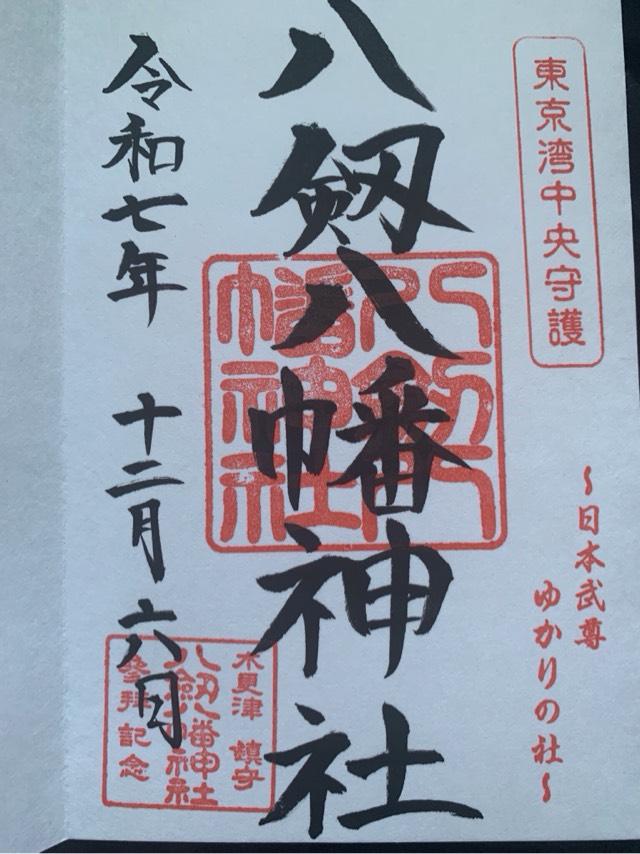 東京湾中央守護
～日本武尊
ゆかりの社～
八剱八幡神社
八剱八幡神社
令和七年 十二月六日
木更津 鎮守
八剱八幡神社
参拝記念